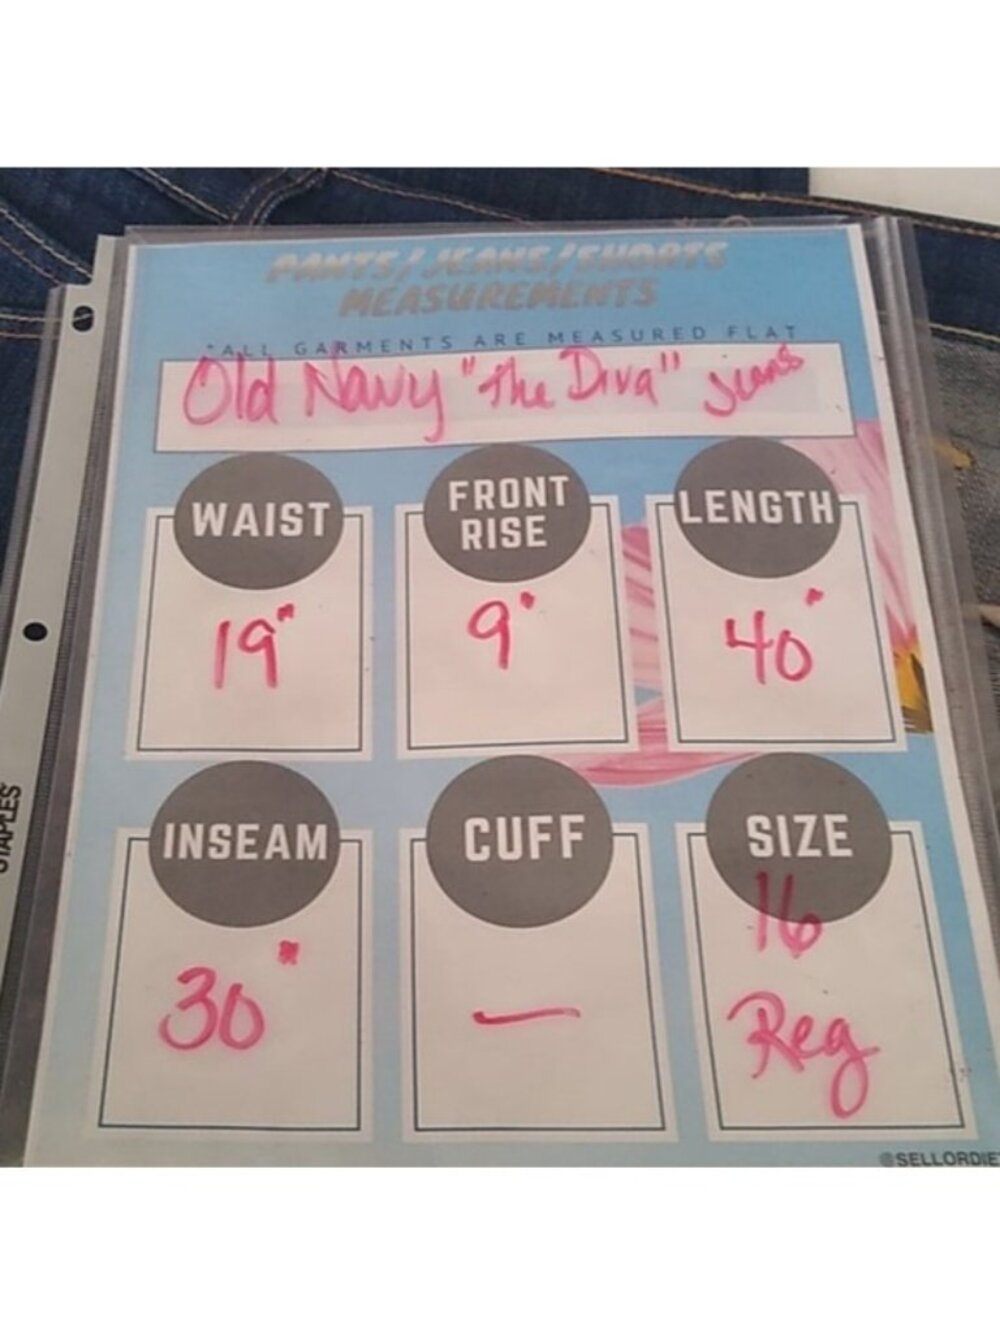 PANTS/JEANS/SHORTS
MEASUREMENTS
*ALL GARMENTS ARE MEASURED FLAT
Old Navy "The Diva" jeans
WAIST
19"
FRONT
RISE
9"
LENGTH
40"
INSEAM
30"
CUFF
—
SIZE
16
Reg
@SELLORDIE
STAPLES